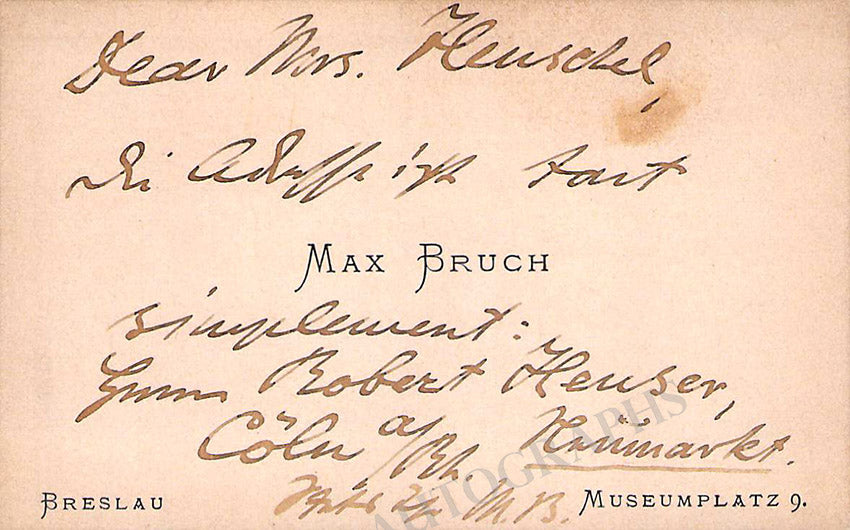 Dear Mrs. Henschel,
Die Adresse ist tout
MAX BRUCH
simplement:
Herrn Robert Heuser,
Cöln a/Rh. Heumarkt.
M.B.
BRESLAU
MUSEUMPLATZ 9.
AUTOGRAPHS